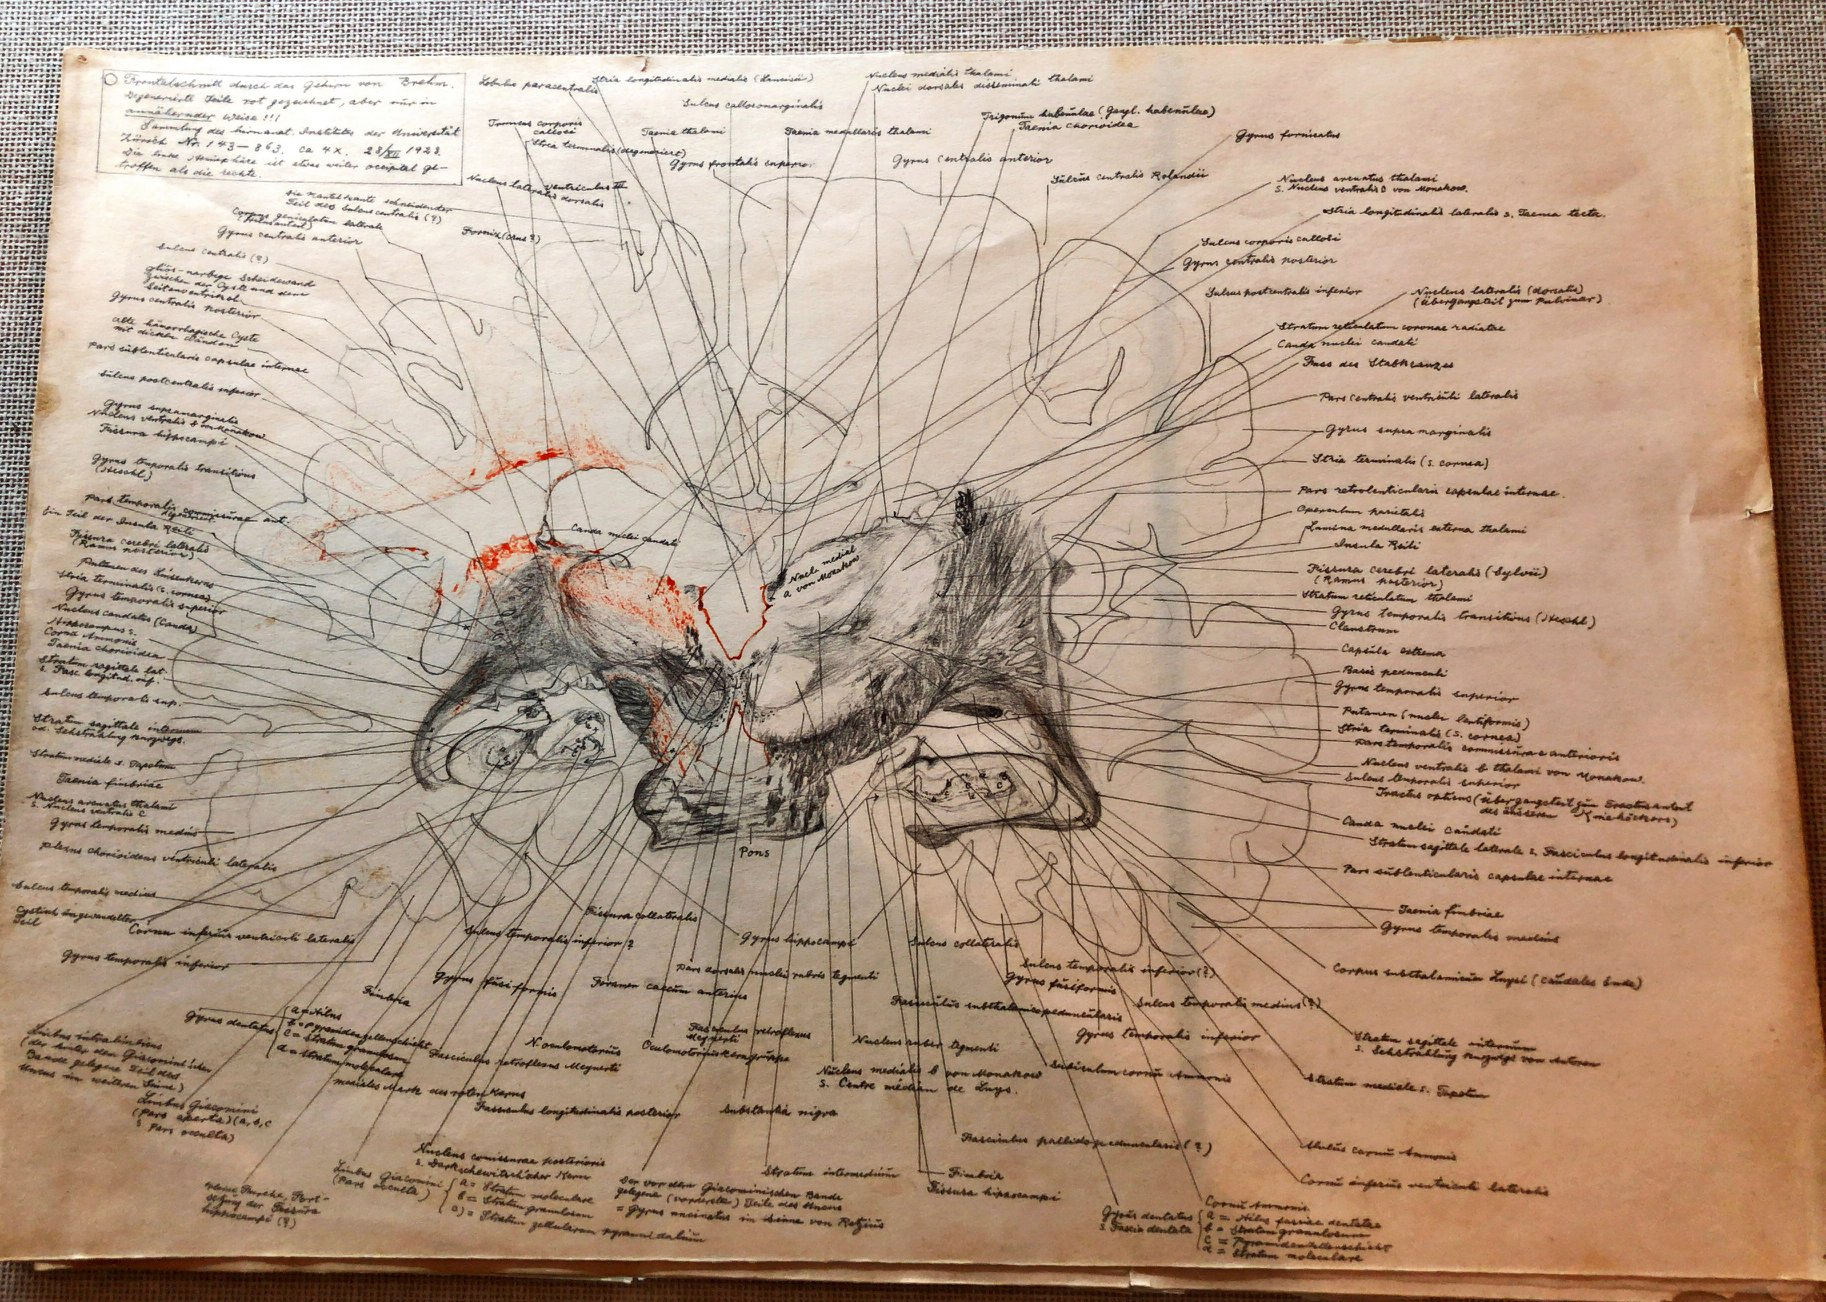 Frontalschnitt durch das Gehirn von Brehm.
Degenerierte Seite rot gezeichnet, aber nur in
annähernder Weise!!!
Sammlung des hirnanat. Institutes der Universität
Zürich Nr. 143–863. ca 4x. 28/XII 1928.
Die linke Hemisphäre ist etwas weiter occipital ge-
troffen als die rechte.
Lobulus paracentralis
Stria longitudinalis medialis (Lancisii)
Sulcus callosomarginalis
Nucleus medialis thalami
Nuclei dorsales disseminati thalami
Truncus corporis
callosi
Stria terminalis (degeneriert)
Taenia thalami
Gyrus frontalis superior
Taenia medullaris thalami
Gyrus centralis anterior
Trigonum habenulae (Gangl. habenulae)
Taenia chorioidea
Sulcus centralis Rolandii
Gyrus fornicatus
Nucleus lateralis dorsalis
ventriculus III.
Fornix (crus?)
Nucleus arcuatus thalami
s. Nucleus ventralis c von Monakow.
Stria longitudinalis lateralis s. Taenia tecta.
Sulcus corporis callosi
Gyrus centralis posterior
Sulcus postcentralis inferior
Nucleus lateralis (dorsalis)
(Übergangsteil zum Pulvinar)
Stratum reticulatum coronae radiatae
Cauda nuclei caudati
Fuss des Stabkranzes
Pars centralis ventriculi lateralis
Gyrus supramarginalis
Stria terminalis (s. cornea)
Pars retrolenticularis capsulae internae
Operculum parietale
Lamina medullaris externa thalami
Insula Reili
Fissura cerebri lateralis (Sylvii)
(Ramus posterior)
Stratum reticulatum thalami
Gyrus temporalis transitivus (Heschl)
Claustrum
Capsula extrema
Basis pedunculi
Gyrus temporalis superior
Putamen (nuclei lentiformis)
Stria terminalis (s. cornea)
Pars temporalis commissurae anterioris
Nucleus ventralis b thalami von Monakow.
Sulcus temporalis superior
Tractus opticus (Übergangsteil zum
des äusseren Kniehöckers)
Cauda nuclei caudati
Stratum sagittale laterale s. Fasciculus longitudinalis inferior
Pars sublenticularis capsulae internae
Taenia fimbriae
Gyrus temporalis medius
Corpus subthalamicum Luysi (caudales Ende)
Stratum sagittale internum
s. Sehstrahlung
Stratum mediale s. Tapetum
Alveus cornu Ammonis
Cornu inferius ventriculi lateralis
die Mantelkante schneidender
Teil des Sulcus centralis (?)
Corpus geniculatum laterale
Gyrus centralis anterior
Sulcus centralis (?)
gliös-narbige Scheidewand
zwischen der Cyste und dem
Seitenventrikel
Gyrus centralis posterior
alte hämorrhagische Cyste
mit dicken Wänden
Pars sublenticularis capsulae internae
Sulcus postcentralis inferior
Gyrus supramarginalis
Nucleus ventralis b von Monakow
Fissura hippocampi
Gyrus temporalis transitivus
(Heschl)
Pars temporalis commissurae ant.
Ein Teil der Insula Reili
Fissura cerebri lateralis
(Ramus posterior)
Stria terminalis (s. cornea)
Gyrus temporalis superior
Nucleus caudatus (Cauda)
Hippocampus s.
Cornu Ammonis
Taenia chorioidea
Stratum sagittale lat.
s. Fasc. longitud. inf.
Sulcus temporalis sup.
Stratum sagittale internum
od. Sehstrahlung kurzwegs.
Stratum mediale s. Tapetum
Taenia fimbriae
Nucleus arcuatus thalami
s. Nucleus ventralis c
Gyrus temporalis medius
Plexus chorioideus ventriculi lateralis
Sulcus temporalis medius
Cystisch umgewandelter
Teil
Cornu inferius ventriculi lateralis
Gyrus temporalis inferior
Cauda nuclei caudati
Nucl. medial.
a von Monakow
Pons
Fissura collateralis
Sulcus temporalis inferior?
Gyrus hippocampi
Sulcus collateralis
Pars dorsalis nuclei rubris tegmenti
Foramen caecum anterius
Gyrus fusiformis
Fimbria
Sulcus temporalis inferior (?)
Gyrus fusiformis
Sulcus temporalis medius (?)
Fasciculus subthalamicopeduncularis
Gyrus temporalis inferior
Gyrus dentatus
a = Hilus
b = Pyramidenzellenschicht
c = Stratum granulosum
d = Stratum moleculare
Fasciculus retroflexus Meynerti
N. oculomotorius
Oculomotoriuskerngruppe
Fasciculus retroflexus
Meynerti
Nucleus ruber tegmenti
Nucleus medialis b von Monakow
s. Centre médian de Luys.
Subiculum cornu Ammonis
mediales Mark des roten Kerns
Fasciculus longitudinalis posterior
Substantia nigra
Fasciculus pallidopeduncularis (?)
Limbus Giacomini
(Pars aperta) (a, b, c
s Pars occulta)
Nucleus comissurae posterioris
s. Darkschewitscher Kern
Limbus Giacomini
(Pars occulta)
a = Stratum moleculare
b = Stratum granulosum
Der vor dem Giacominischen Bande
gelegene (vorderste) Teile des Uncus
= Gyrus uncinatus im Sinne von Retzius
Stratum intermedium
Fimbria
Fissura hippocampi
kleine Furche, Fort-
setzung der Fissura
hippocampi (?)
Cornu Ammonis
Gyrus dentatus
s. Fascia dentata
a = Hilus fasciae dentatae
b = Stratum granulosum
c = Pyramidenzellenschicht
d = Stratum moleculare